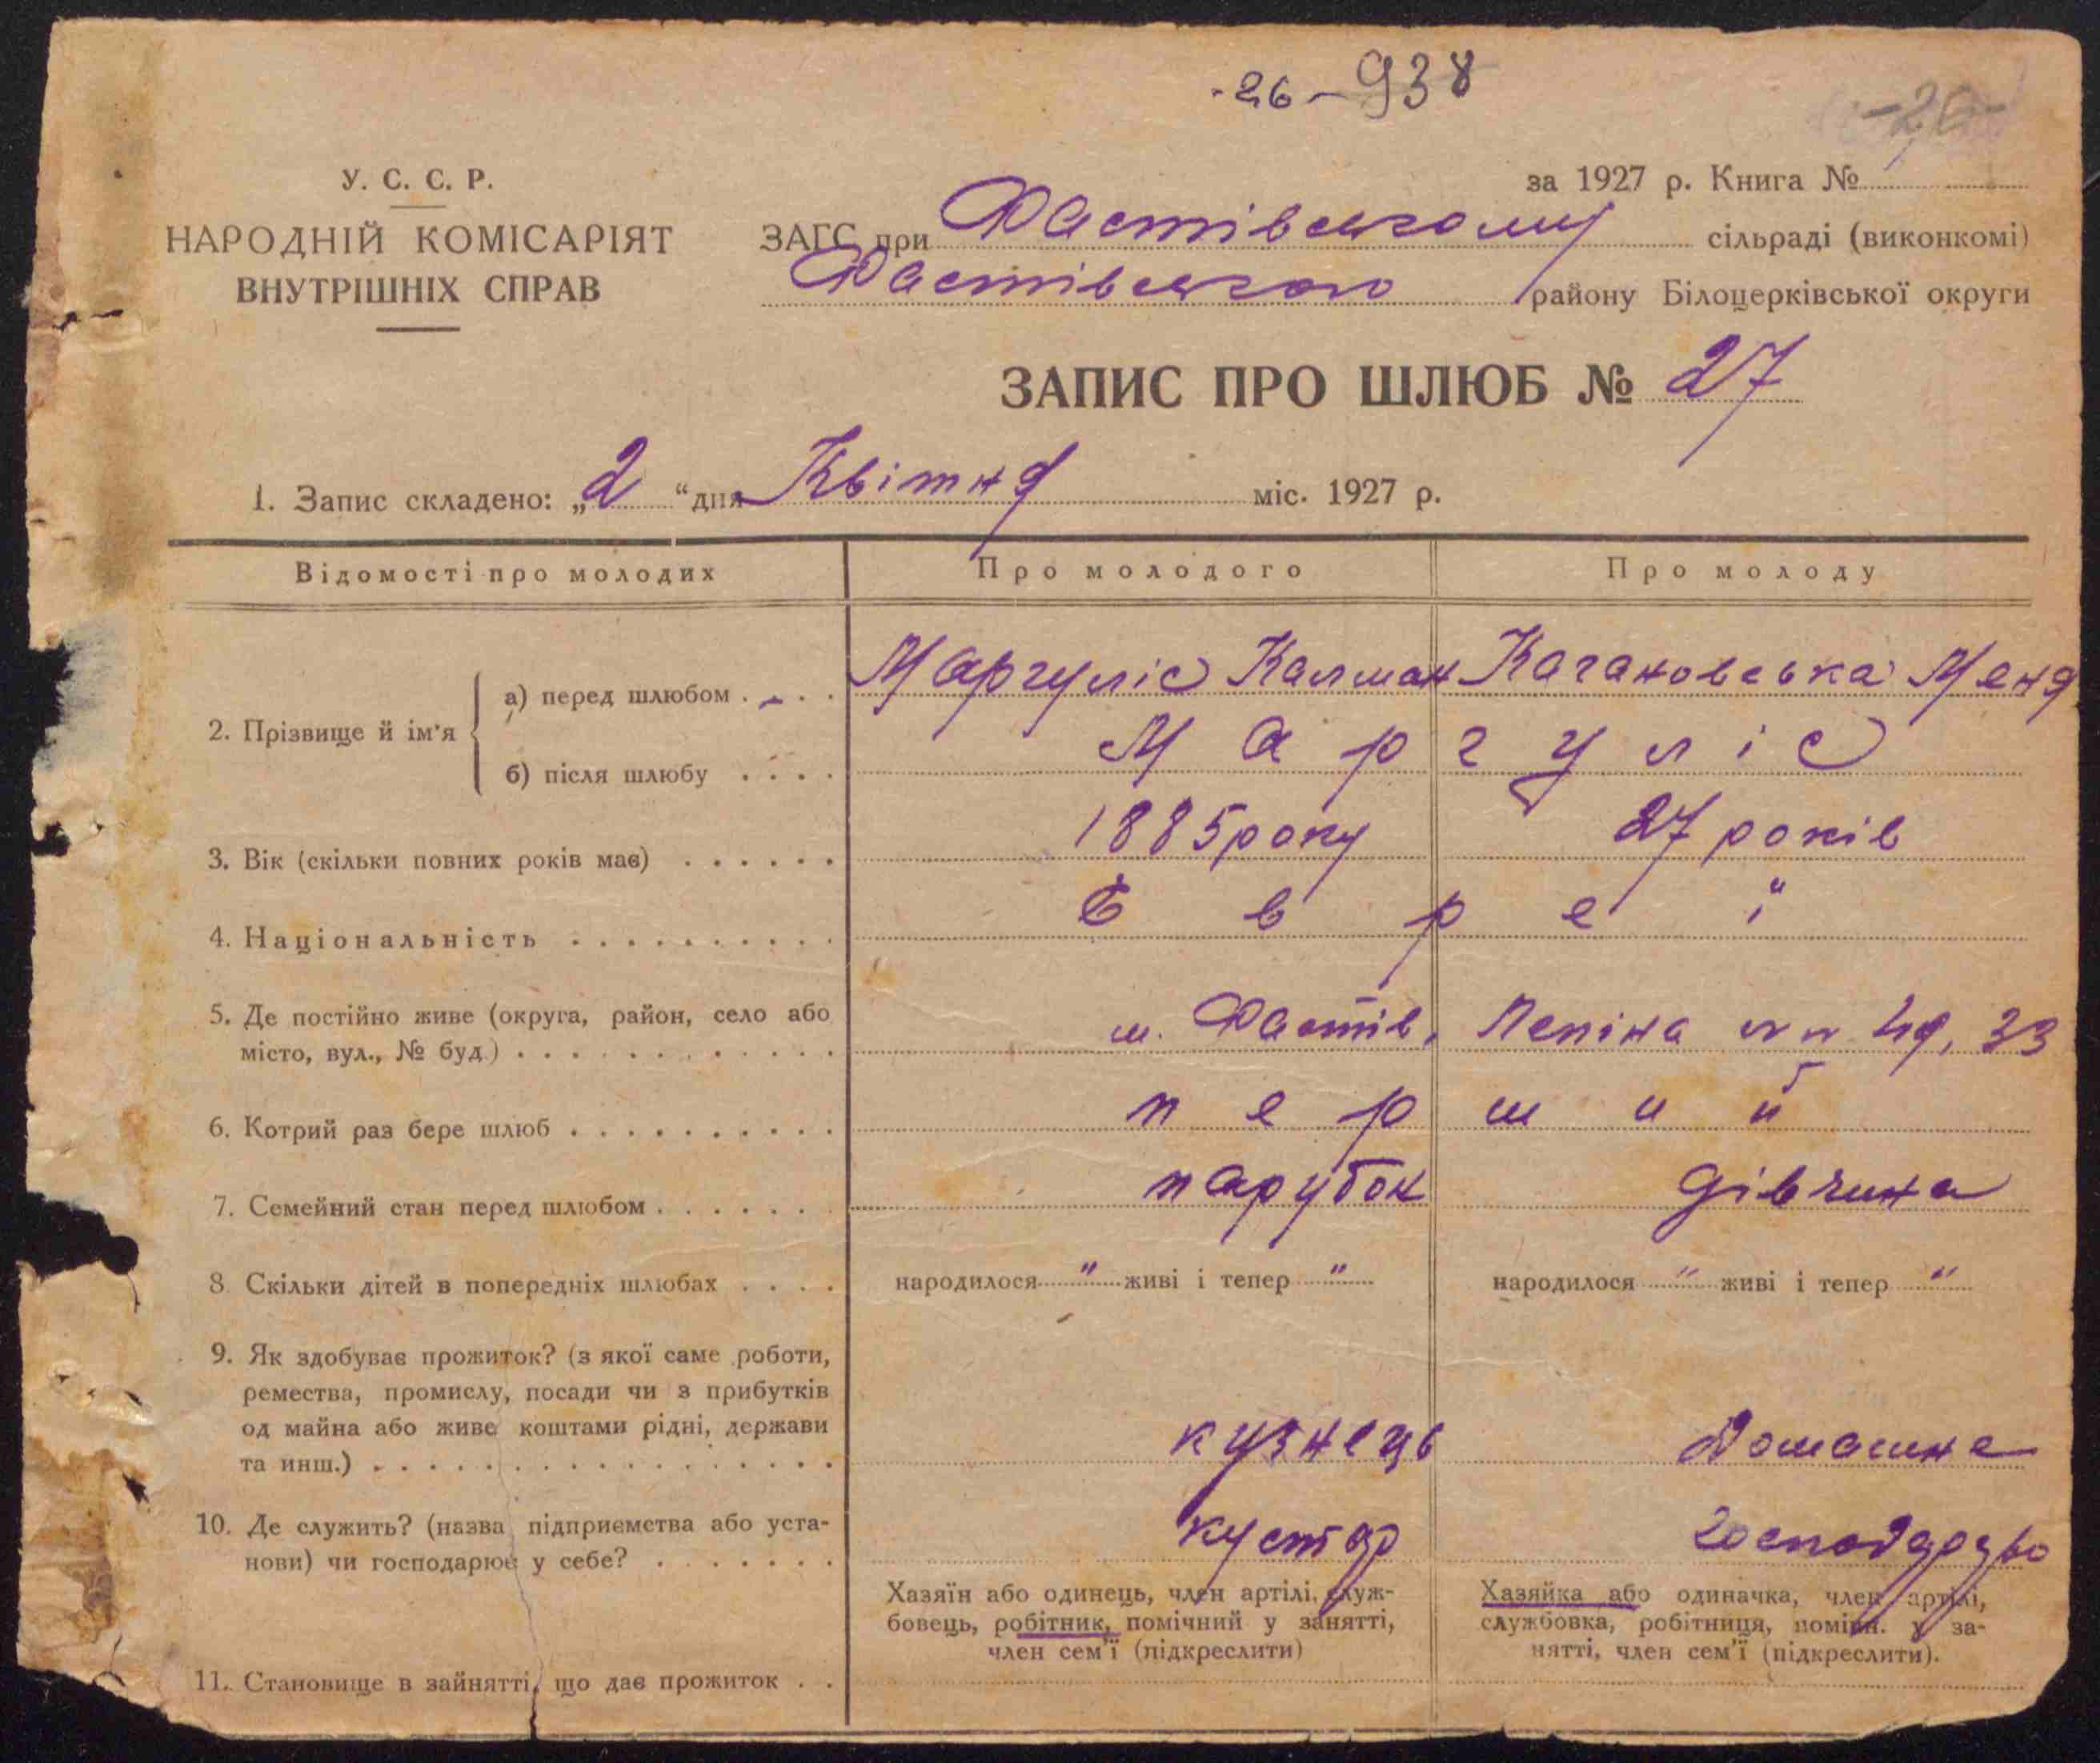 -26-938
-26-
У. С. С. Р.
НАРОДНІЙ КОМІСАРІЯТ
ВНУТРІШНІХ СПРАВ
за 1927 р. Книга №
ЗАГС при Фастівському сільраді (виконкомі)
Фастівського району Білоцерківської округи
ЗАПИС ПРО ШЛЮБ № 27
1. Запис складено: „2“ дня Квітня міс. 1927 р.
Відомості про молодих Про молодого Про молоду
2. Прізвище й ім'я
а) перед шлюбом . . . . Маргуліс Калман Кагановська Меня
б) після шлюбу . . . . Маргуліс
3. Вік (скільки повних років має) . . . . . . 1885 року 27 років
4. Національність . . . . . . . . . . Євреї
5. Де постійно живе (округа, район, село або
місто, вул., № буд.) . . . . . . . . . . . . м. Фастів, Леніна 33
6. Котрий раз бере шлюб . . . . . . . . . . перший
7. Семейний стан перед шлюбом . . . . . . . парубок дівчина
8. Скільки дітей в попередніх шлюбах . . . . народилося " живі і тепер " народилося " живі і тепер "
9. Як здобуває прожиток? (з якої саме роботи,
ремества, промислу, посади чи з прибутків
од майна або живе коштами рідні, держави
та инш.) . . . . . . . . . . . . . . . . . кузнець Домашне
10. Де служить? (назва підприємства або уста-
нови) чи господарює у себе? . . . . . . . кустар господарство
Хазяїн або одинець, член артілі, служ-
бовець, робітник, помічний у занятті,
член сем'ї (підкреслити)
Хазяйка або одиначка, член артілі,
службовка, робітниця, помічн. у за-
нятті, член сем'ї (підкреслити).
11. Становище в зайнятті, що дає прожиток . .